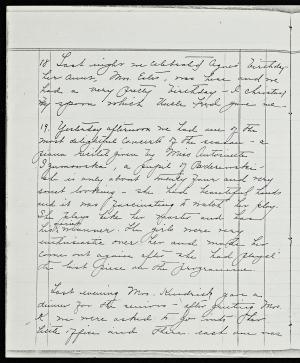 18 Last night we celebrated Agnes' birthday
her Aunt, Mrs. , was here and we
had a very pretty birthday - I christened
my spoon which Uncle Fred gave me -
19. Yesterday afternoon we had one of the
most delightful concerts of the season - a
piano recital given by Miss Antoinette
Szumowska - a pupil of Paderewski -
She is only about twenty four and very
sweet looking - she had beautiful hands
and it was fascinating to watch her play.
She plays like her master and has
. The girls were very
enthusiastic over her and made her
come out again after she had played
the last piece on the programme.
Last evening Mrs. Kendrick gave a
dinner for the seniors - after meeting Mrs.
K we were asked to go into the
little office and there each one was